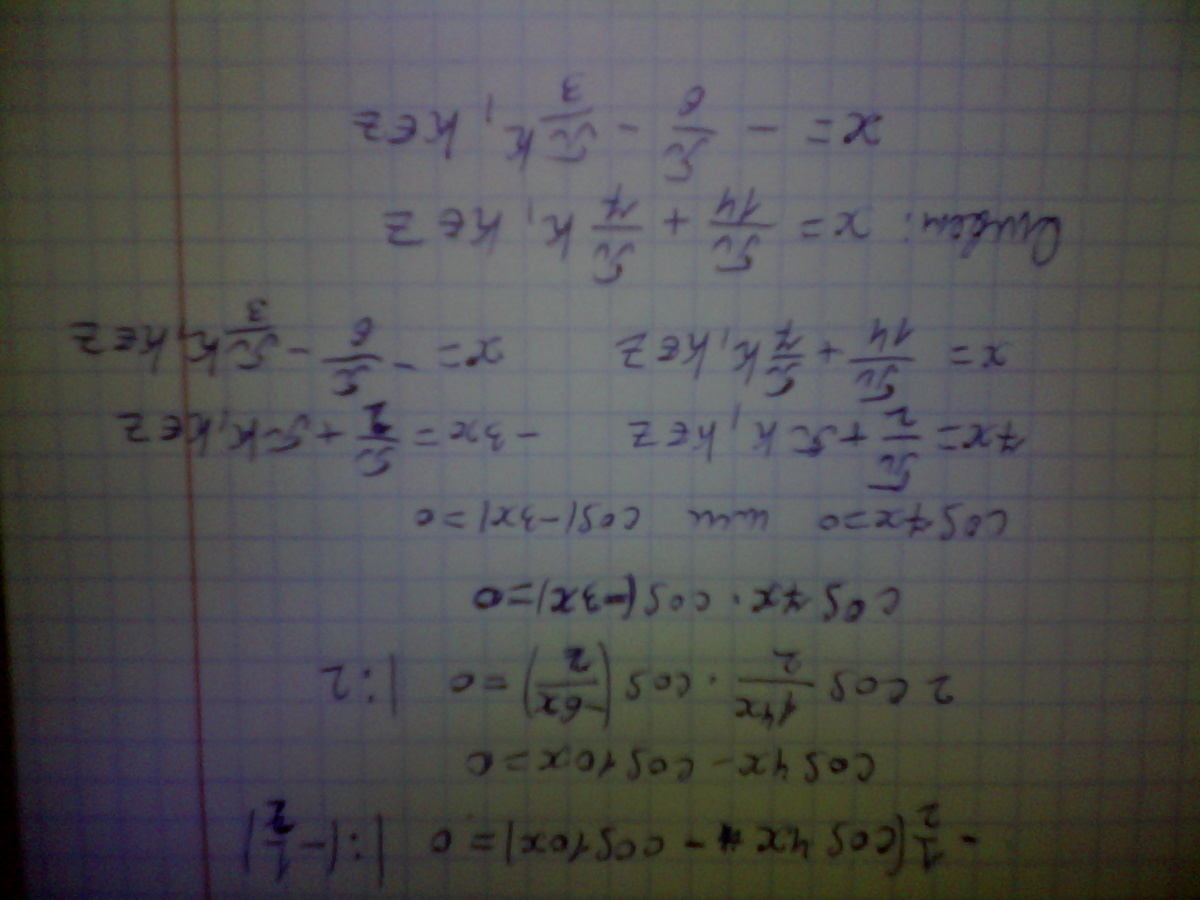 - 1/2 (cos 4x - cos 10x) = 0 |:(-1/2)
cos 4x - cos 10x = 0
2 cos 14x/2 · cos (-6x/2) = 0 |:2
cos 7x · cos (-3x) = 0
cos 7x = 0 или cos (-3x) = 0
7x = π/2 + πk, k∈Z -3x = π/2 + πk, k∈Z
x = π/14 + π/7 k, k∈Z x = - π/6 - π/3 k, k∈Z
Ответ: x = π/14 + π/7 k, k∈Z
x = - π/6 - π/3 k, k∈Z